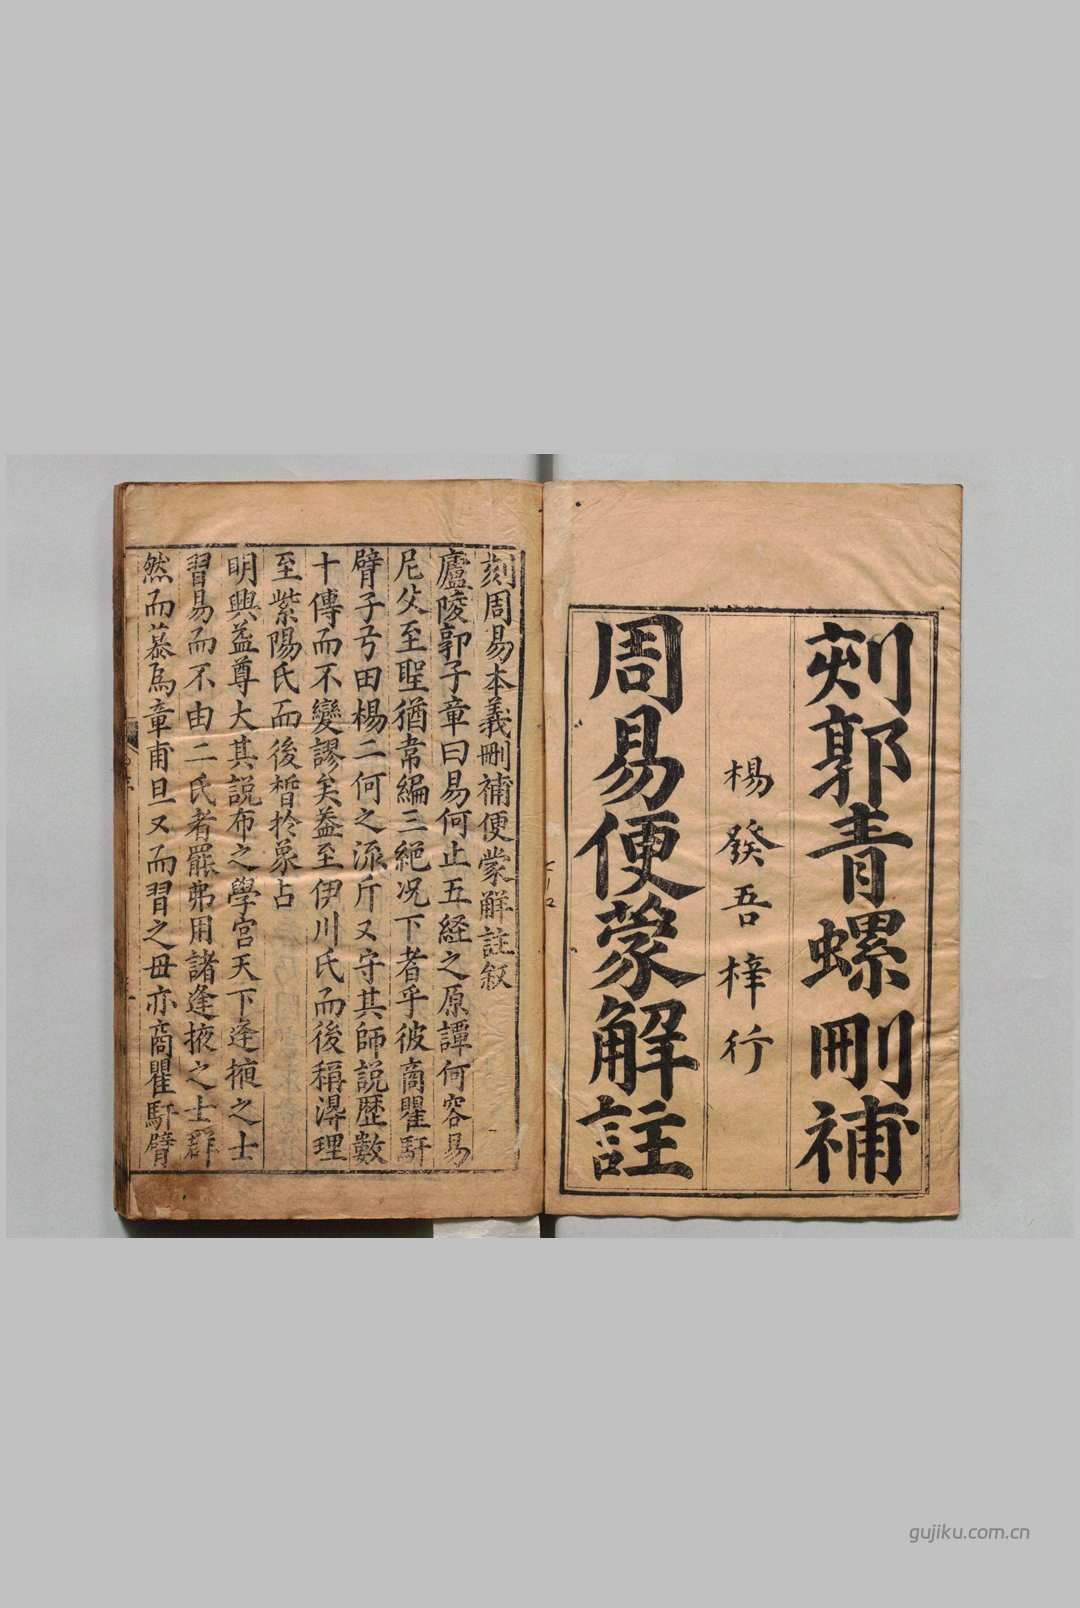 刻郭青螺刪補
楊發吾梓行
周易便蒙解註
刻周易本義刪補便蒙解註叙
廬陵郭子章曰易何止五経之原譚何容易
尼父至聖猶韋編三絕况下者乎彼商瞿馯
臂子弓田楊二何之流斤又守其師説歴數
十傳而不變謬矣葢至伊川氏而後稱淂理
至紫陽氏而後晳扵象占
明興益尊大其説布之學宮天下逢掖之士
習易而不由二氏者罷弗用諸逢掖之士群
然而慕為章甫旦又而習之毌亦商瞿馯臂
gujiku.com.cn